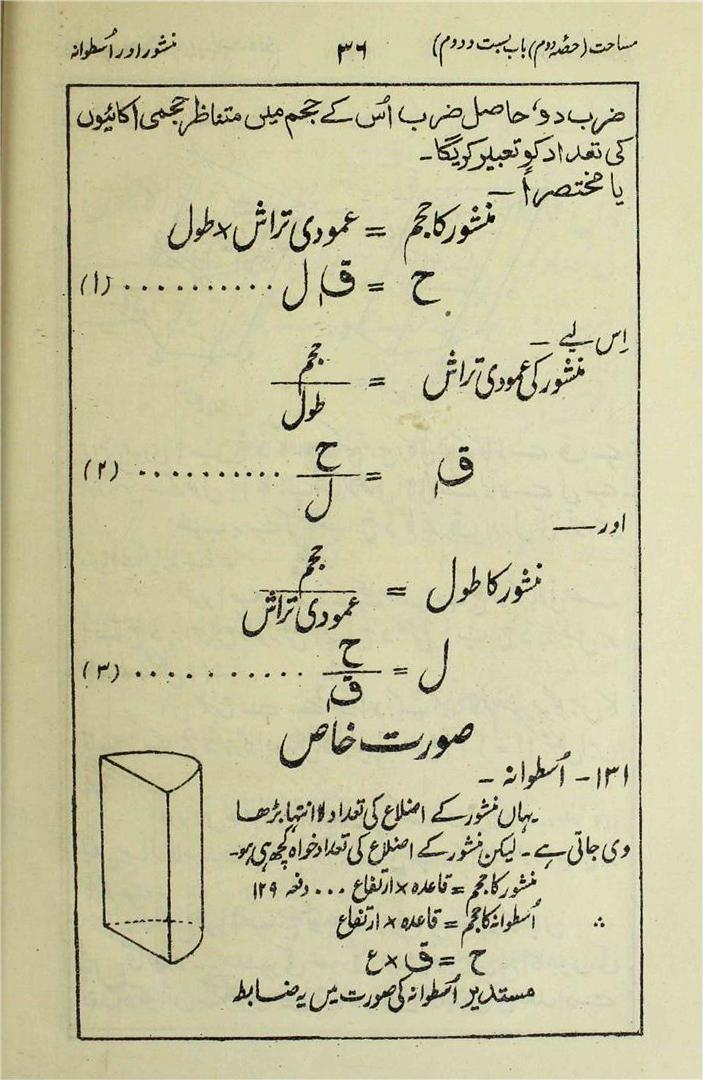 مساحت (حصّہ دوم) باب بست و دوم) ۳۶ منشور اور اُسطوانہ
ضرب دو، حاصل ضرب اُس کے حجم میں متناظر حجمی اکائیوں
کی تعداد کو تعبیر کریگا۔
یا مختصراً —
منشور کا حجم = عمودی تراش × طول
ح = ق ل .......... (۱)
اِس لیے —
منشور کی عمودی تراش = حجم / طول
ق = ح / ل .......... (۲)
اور —
منشور کا طول = حجم / عمودی تراش
ل = ح / ق .......... (۳)
صورت خاص
۱۳۱ - اُسطوانہ -
یہاں منشور کے اضلاع کی تعداد لا انتہا بڑھا
دی جاتی ہے۔ لیکن منشور کے اضلاع کی تعداد خواہ کچھ ہی ہو۔
منشور کا حجم = قاعدہ × ارتفاع ... دفعہ ۱۲۹
∴ اُسطوانہ کا حجم = قاعدہ × ارتفاع
ح = ق × ع
مستدیر اُسطوانہ کی صورت میں یہ ضابطہ